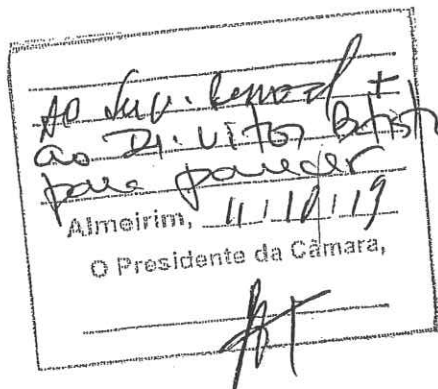 Ao
ao Dr. Vitor Batista
para parecer
Almeirim, 11/10/19
O Presidente da Câmara,